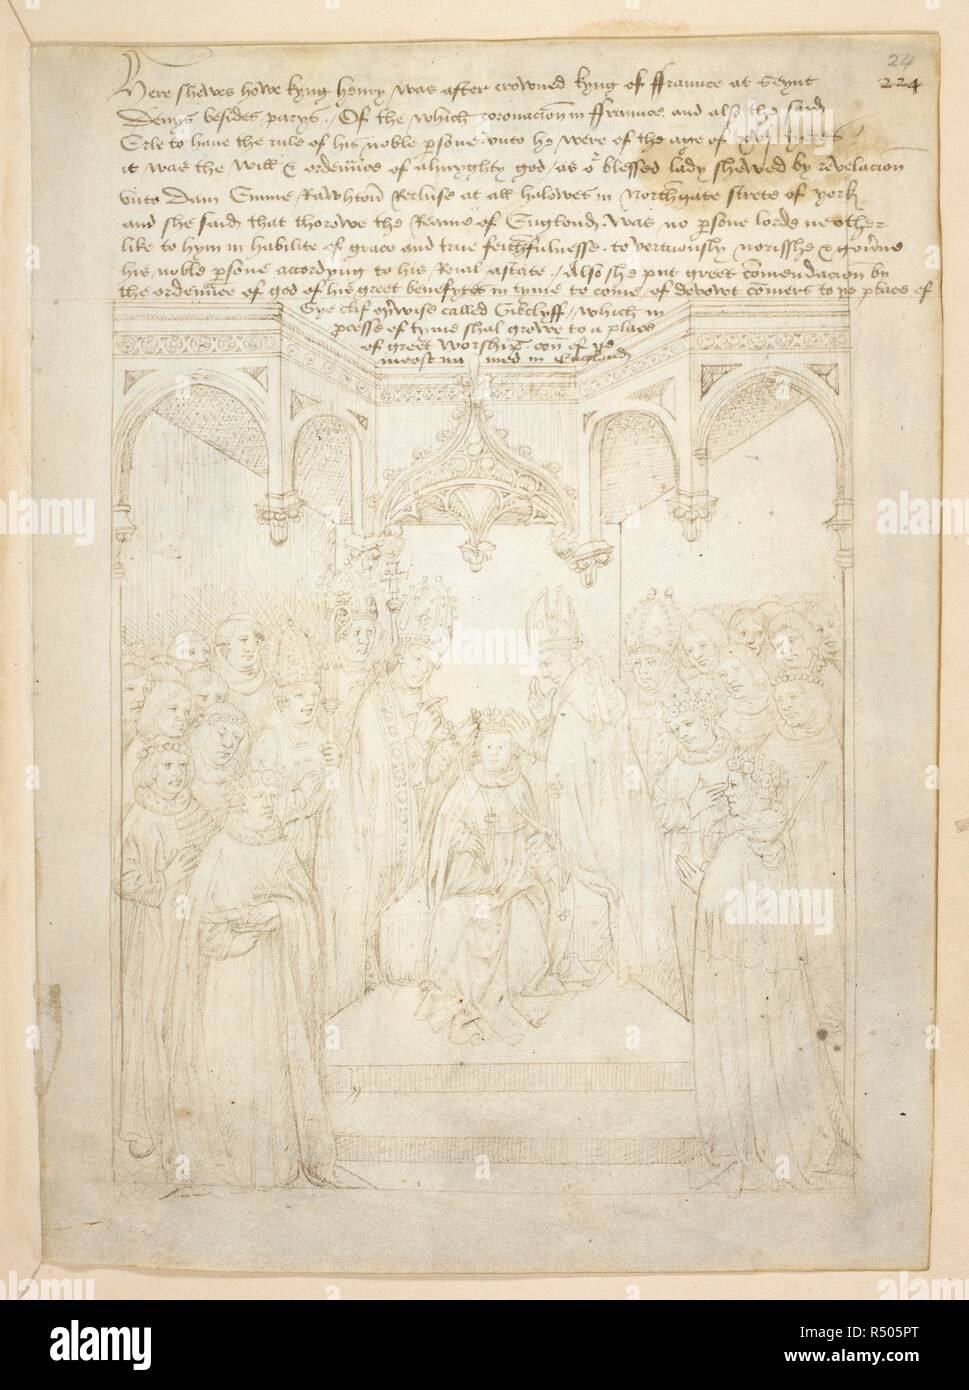 24
224
Here shewes howe kyng henry was after crowned kyng of ffraunce at Seynt
Denys besides parys / Of the which coronacion in ffraunce and also the said
Erle to haue the rule of his noble psone unto he were of the age of yeres
it was the will & ordenance of almyghty god / as or blessed lady shewed by revelacion
unto Dam Emme Rawhton Recluse at all halowes in Northgate strete of york
and she said that thorowe the Reame of Englond was no psone lorde ne other
like to hym in habilite of grace and true feithfulnesse to vertuously norisshe & gouerne
his noble psone accordyng to his Roial astate / Also she put greet comendacion by
the ordenance of god of his greet benefytes in tyme to come / of devowt comers to ye place of
Gye clif oyrwise called Gibclyff / which in
pcesse of tyme shal growe to a place
of greet worship con of ye
moost na med in Englond
alamy
alamy
Image ID: R505PT
www.alamy.com